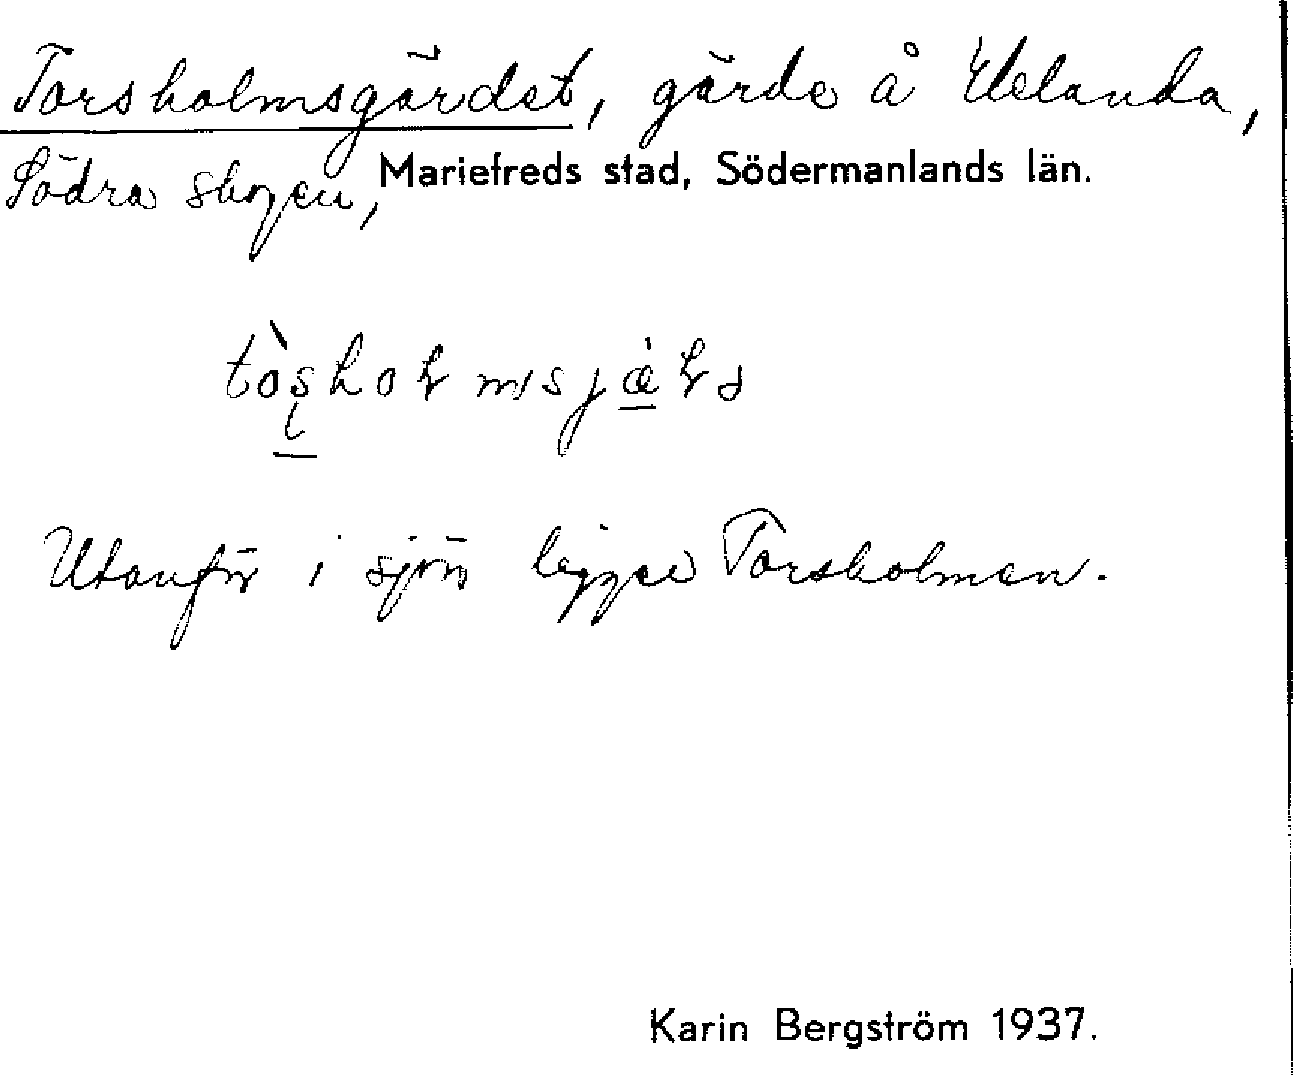 Torsholmsgärdet, gärde å Uelanda,
Södra skogen, Mariefreds stad, Södermanlands län.
Utanför i sjön ligger Torsholmen.
Karin Bergström 1937.